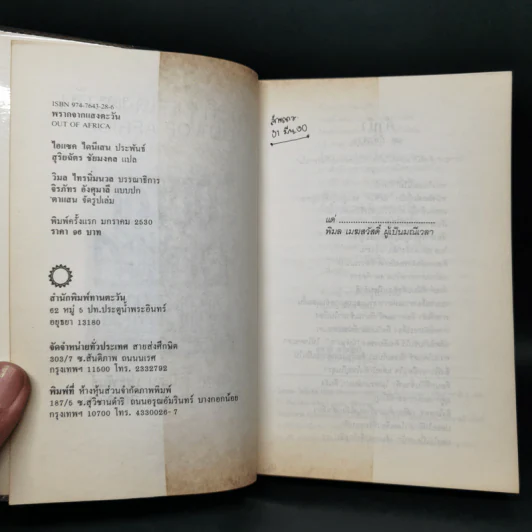 ISBN 974-7643-28-6
พรากจากแสงตะวัน
OUT OF AFRICA
ไอแซค ไดนีเสน ประพันธ์
สุริยฉัตร ชัยมงคล แปล
วิมล ไทรนิ่มนวล บรรณาธิการ
จิรภัทร อังศุมาลี แบบปก
ตาแสน จัดรูปเล่ม
พิมพ์ครั้งแรก มกราคม 2530
ราคา ๖๖ บาท
สำนักพิมพ์ทานตะวัน
62 หมู่ 5 ปท.ประตูน้ำพระอินทร์
อยุธยา 13180
จัดจำหน่ายทั่วประเทศ สายส่งศึกษิต
303/7 ซ.สันติภาพ ถนนนเรศ
กรุงเทพฯ 11500 โทร. 2332792
พิมพ์ที่ ห้างหุ้นส่วนจำกัดภาพพิมพ์
187/5 ซ.สุวิชานดำริ ถนนอรุณอัมรินทร์ บางกอกน้อย
กรุงเทพฯ 10700 โทร. 4330026-7
แด่
พิมล เมฆสวัสดิ์ ผู้เป็นมณีเวลา